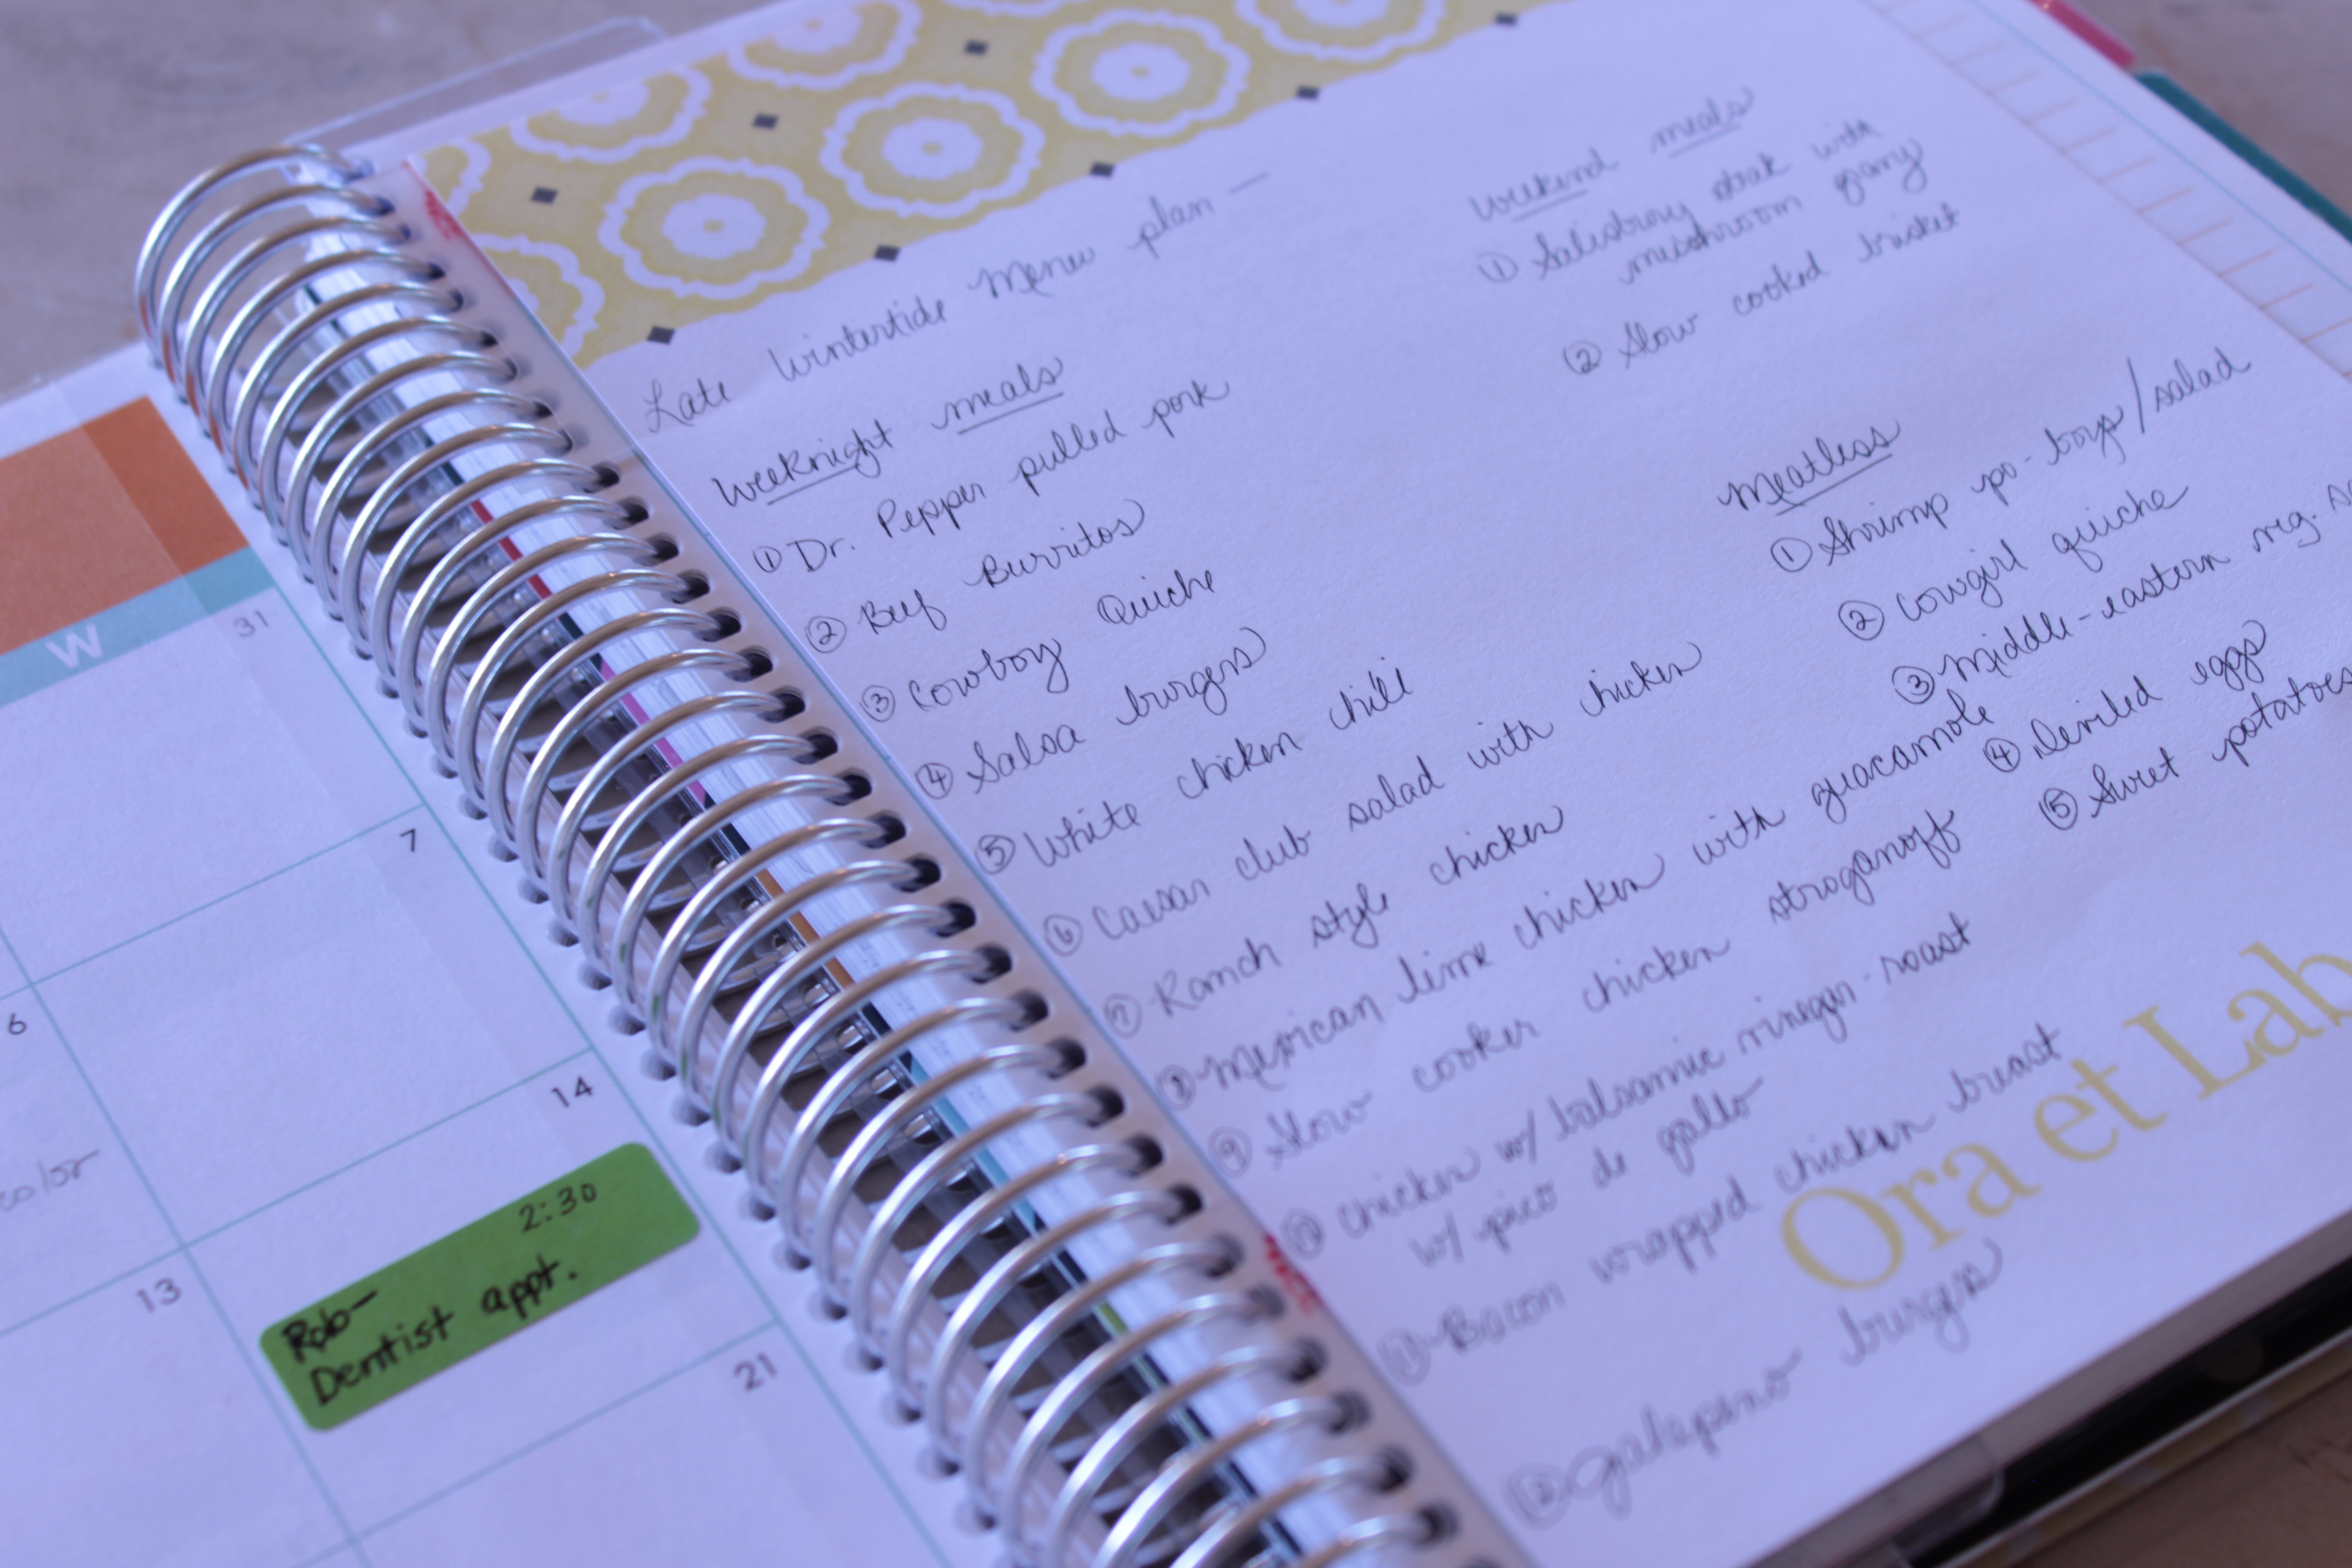 W
31
7
6
14
color
2:30
Rob-
Dentist appt.
13
21
Late Wintertide Menu plan —
Weeknight meals
① Dr. Pepper pulled pork
② Beef Burritos
③ Cowboy Quiche
④ Salsa burgers
⑤ White chicken chili
⑥ Caesar club salad with chicken
⑦ Ranch style chicken
⑧ Mexican lime chicken with guacamole
⑨ Slow cooker chicken stroganoff
⑩ Chicken w/ balsamic vinegar-roast
w/ pico de gallo
⑪ Bacon wrapped chicken breast
⑫ Jalapeno burgers
Weekend meals
① Salisbury steak with
mushroom gravy
② Slow cooked brisket
Meatless
① Shrimp po-boys/salad
② Cowgirl quiche
③ Middle-eastern veg.
④ Deviled eggs
⑤ Sweet potatoes
Ora et Lab